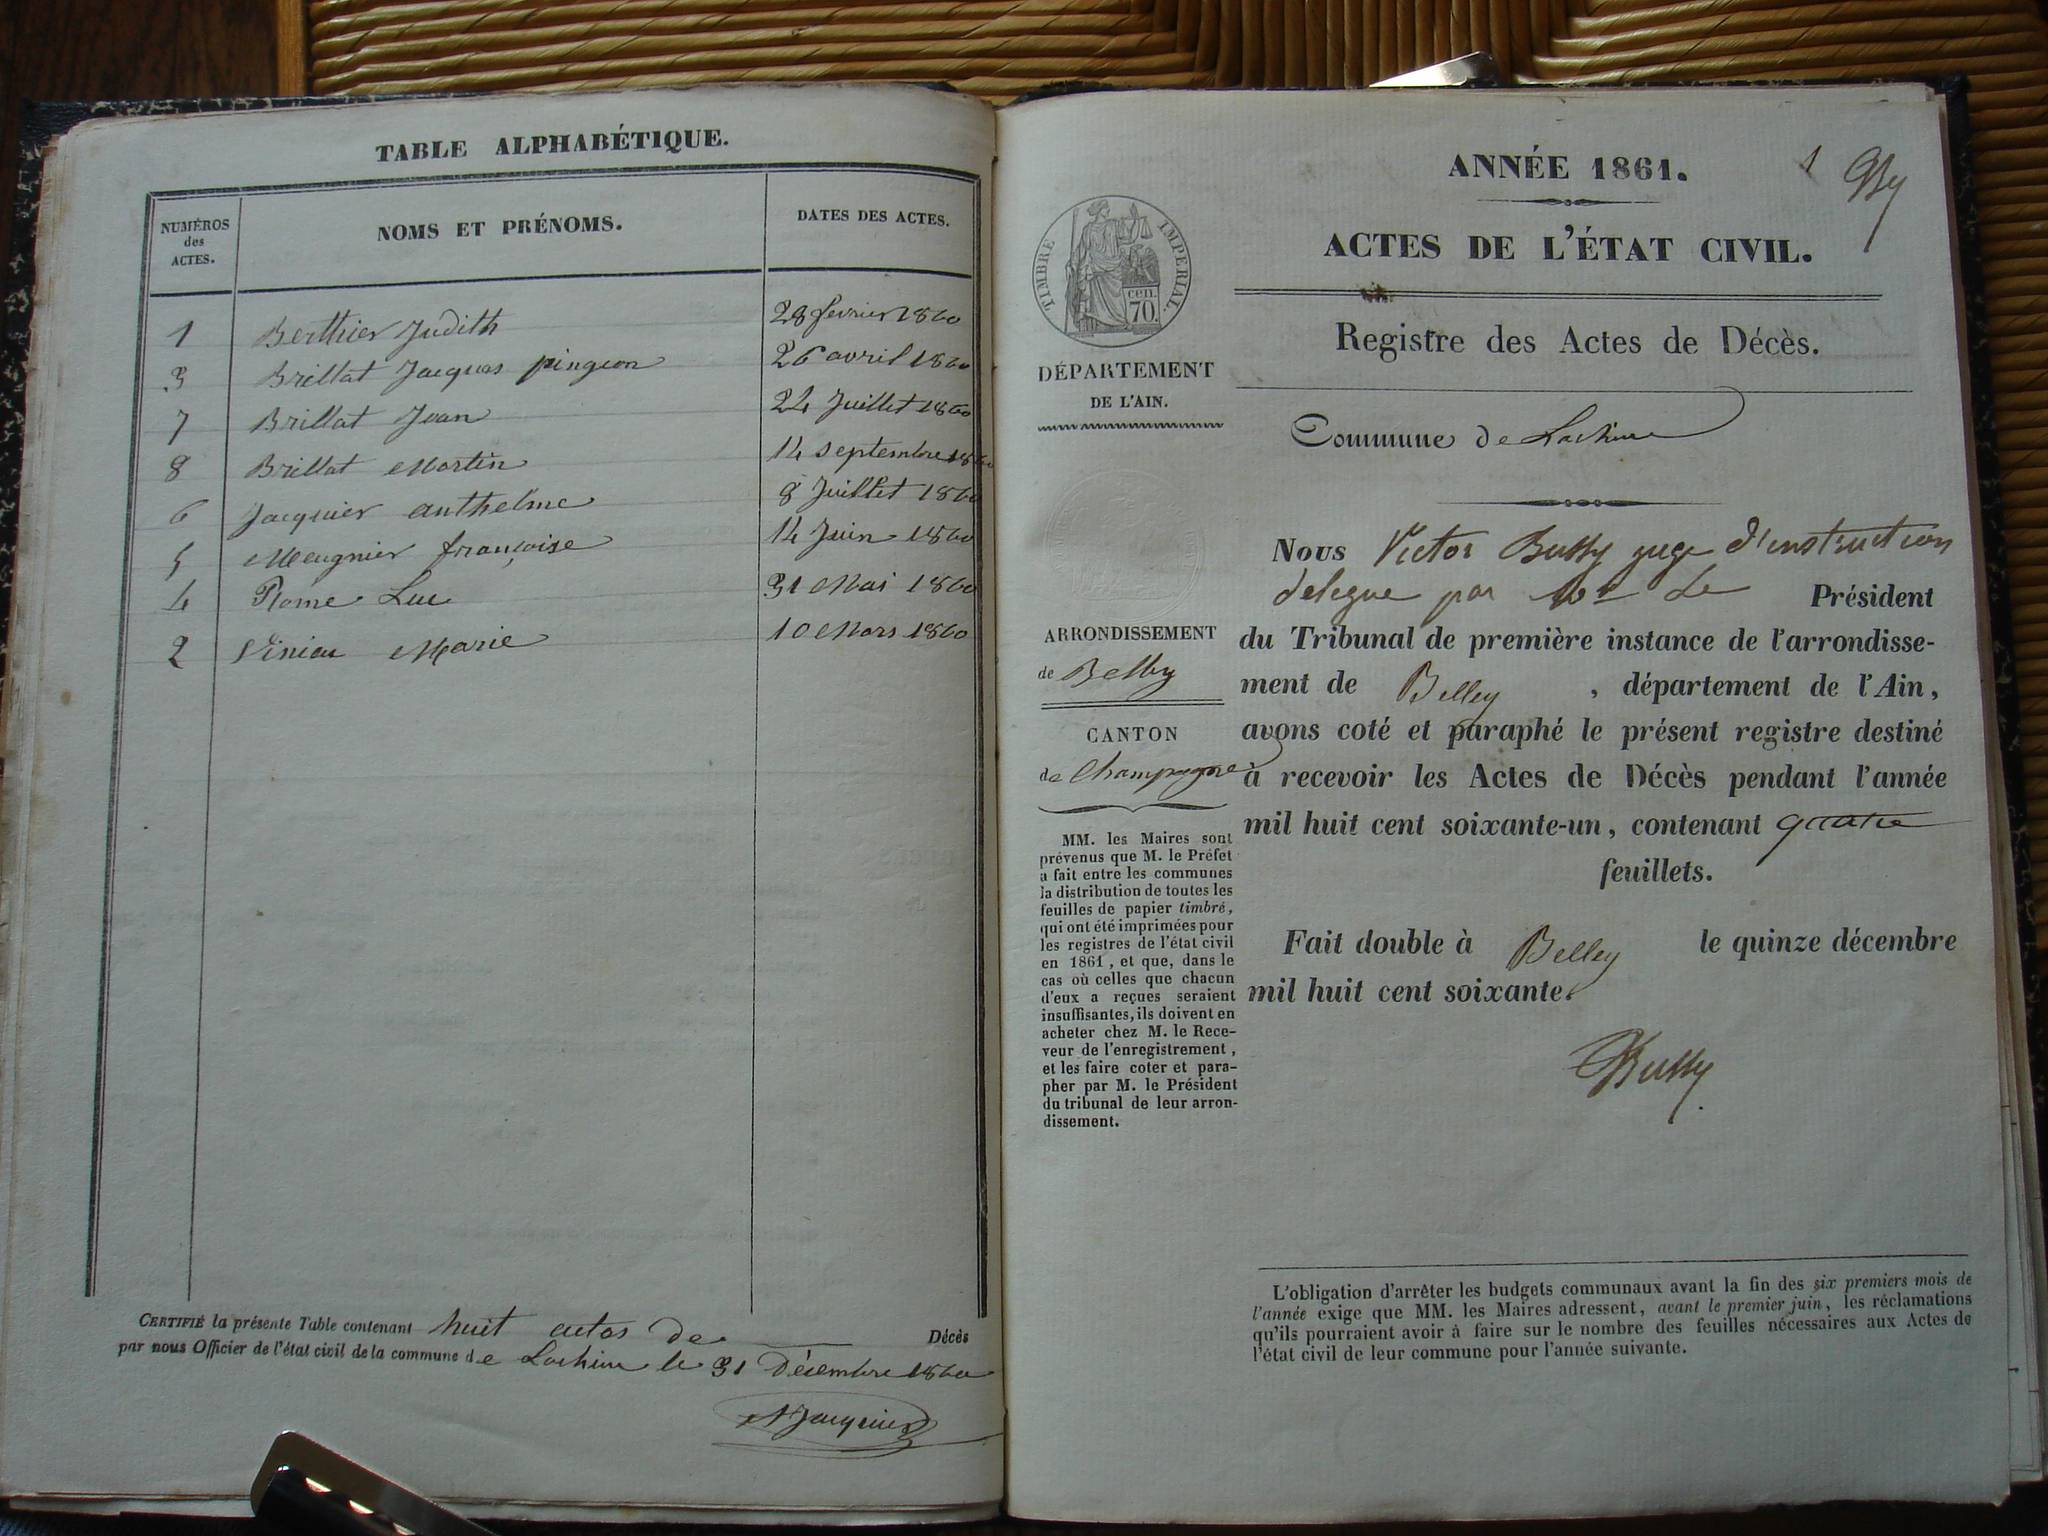 TABLE ALPHABÉTIQUE.
NUMÉROS des ACTES. NOMS ET PRÉNOMS. DATES DES ACTES.
1 Berthier Judith 28 fevrier 1860
3 Brillat Jacques pingeon 26 avril 1860
7 Brillat Jean 24 Juillet 1860
8 Brillat Martin 14 septembre 1860
6 Jacquier anthelme 8 Juillet 1860
5 Meugnier françoise 14 Juin 1860
4 Rome Luc 31 Mai 1860
2 Marie 10 Mars 1860
CERTIFIÉ la présente Table contenant huit actes de Décès
par nous Officier de l'état civil de la commune de Lochieu le 31 Décembre 1860
Jacquier
ANNÉE 1861.
1
ACTES DE L'ÉTAT CIVIL.
Registre des Actes de Décès.
Commune de Lochieu
TIMBRE IMPERIAL.
cen.
70.
DÉPARTEMENT
DE L'AIN.
ARRONDISSEMENT
de Belley
CANTON
de Champagne
MM. les Maires sont
prévenus que M. le Préfet
a fait entre les communes
la distribution de toutes les
feuilles de papier timbré,
qui ont été imprimées pour
les registres de l'état civil
en 1861, et que, dans le
cas où celles que chacun
d'eux a reçues seraient
insuffisantes, ils doivent en
acheter chez M. le Rece-
veur de l'enregistrement,
et les faire coter et para-
pher par M. le Président
du tribunal de leur arron-
dissement.
Nous Victor Bussy juge d'instruction
delegue par Mr Le Président
du Tribunal de première instance de l'arrondisse-
ment de Belley, département de l'Ain,
avons coté et paraphé le présent registre destiné
à recevoir les Actes de Décès pendant l'année
mil huit cent soixante-un, contenant quatre
feuillets.
Fait double à Belley le quinze décembre
mil huit cent soixante.
Bussy
L'obligation d'arrêter les budgets communaux avant la fin des six premiers mois de
l'année exige que MM. les Maires adressent, avant le premier juin, les réclamations
qu'ils pourraient avoir à faire sur le nombre des feuilles nécessaires aux Actes de
l'état civil de leur commune pour l'année suivante.